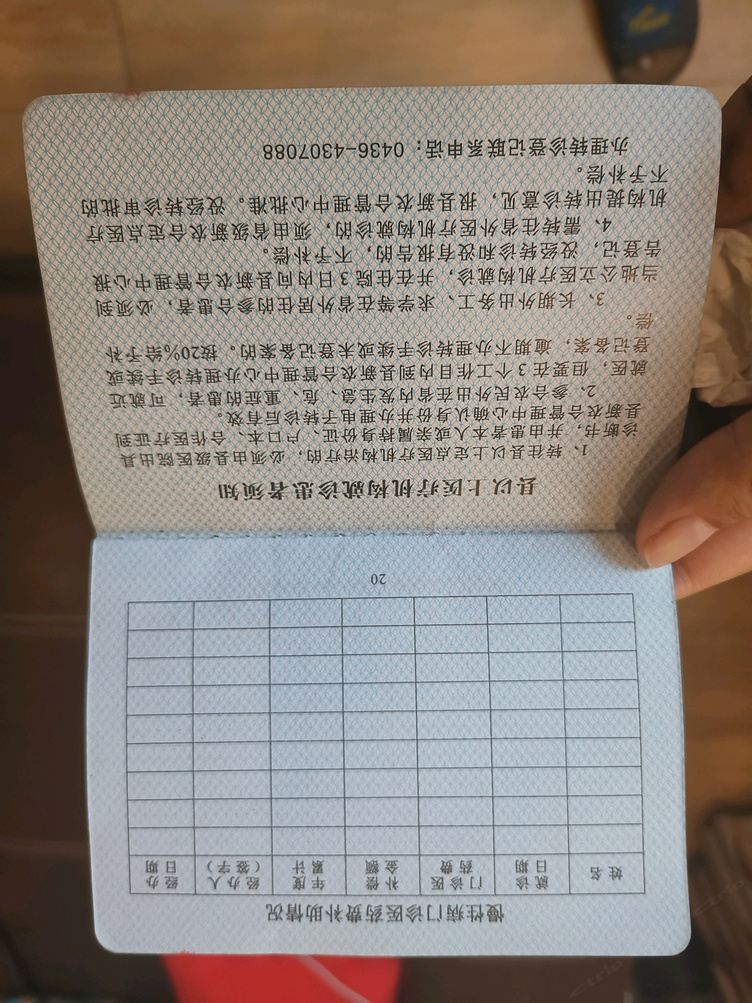 慢性病门诊医药费补助情况
姓名 就诊 门诊医 补偿 年度 经办人 经办
日期 药费 金额 累计 （签字） 日期
20
县以上医疗机构就诊患者须知
1、转往县以上定点医疗机构治疗的，必须由县级医院出具
诊断书，并由患者本人或亲属持身份证、户口本、合作医疗证到
县新农合管理中心确认身份并办理电子转诊后有效。
2、参合农民外出在省内发生急、危、重症的患者，可就近
就医，但要在3个工作日内到县新农合管理中心办理转诊手续或
登记备案，逾期不办理转诊手续或未登记备案的。按20%给予补
偿。
3、长期外出务工、求学等在省外居住的参合患者，必须到
当地公立医疗机构就诊，并在住院3日内向县新农合管理中心报
告登记，没经转诊和没有报告的，不予补偿。
4、需转往省外医疗机构就诊的，须由省级新农合定点医疗
机构提出转诊意见，报县新农合管理中心批准。没经转诊审批的
不予补偿。
办理转诊登记联系电话：0436-4307088